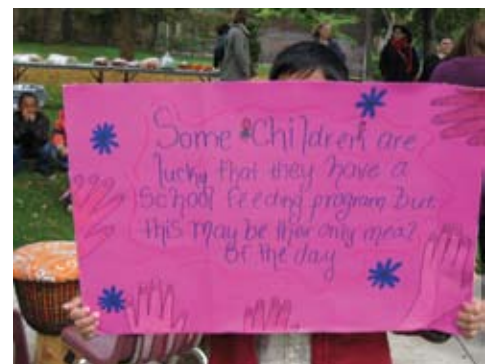 Some Children are
lucky that they have a
School feeding program but
this may be thier only meal
of the day